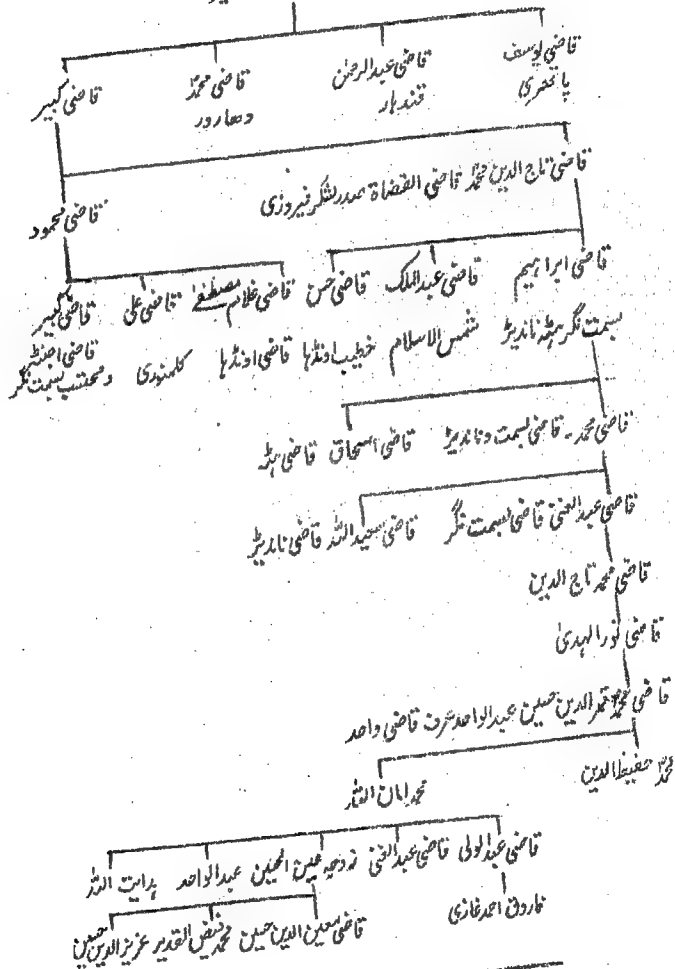 قاضی یوسف قاضی عبدالرحمٰن قاضی محمدؐ قاضی کبیر
پاتھری قندہار دھارور
قاضی تاج الدین محمدؐ قاضی القضاۃ صدر لشکر فیروزی قاضی محمود
قاضی ابراہیم قاضی عبدالملک قاضی حسن قاضی غلام مصطفےٰ قاضی علی قاضی کبیر
بسمت نگر ہٹہ ناندیڑ شمس الاسلام خطیب اونڈہا قاضی اونڈہا کلمنوری قاضی
و محتسب بسمت نگر
قاضی محمد۔ قاضی بسمت و ناندیڑ قاضی اسحاق قاضی ہٹہ
قاضی عبدالغنی قاضی بسمت نگر قاضی سعید اللہ قاضی ناندیڑ
قاضی محمد تاج الدین
قاضی نورالہدیٰ
قاضی محمدؐ قمر الدین حسین عبدالواحد عرف قاضی واحد
محمدؐ حفیظ الدین محمد امان اللہ
قاضی عبدالولی قاضی عبدالغنی زوجہ معین الحسین عبدالواحد ہدایت اللہ
فاروق احمد غازی
قاضی معین الدین حسین محمد فیض القدیر عزیز الدین حسین